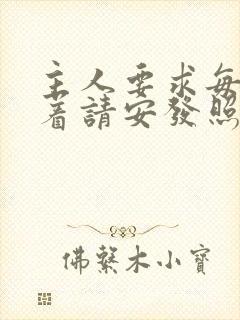 主人要求每
着請安發照
佛系木小寶